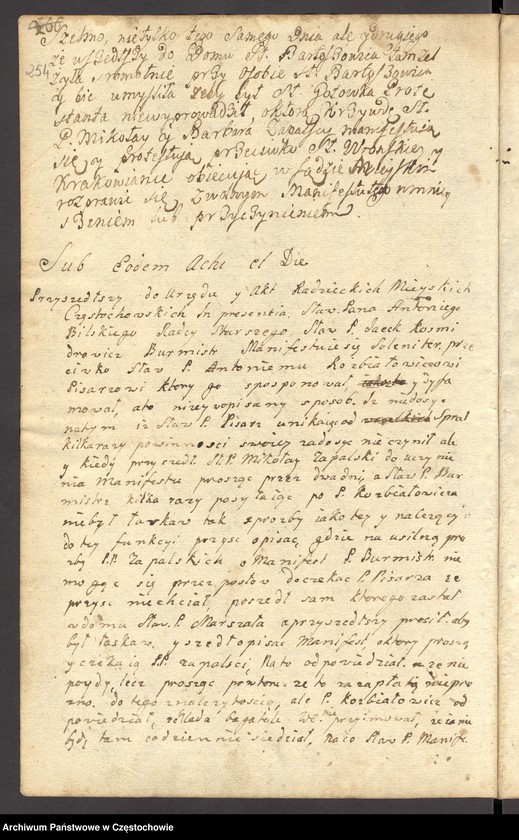 266
254
Szelmo, nie tylko tego Samego Dnia ale y drugiego
że wszedszy do Domu St. Bartoszowica
zyła sromotnie przy osobie St. Bartoszowica
y bić umysliła żeby był St. Gołowka Prote
stanta niewyprowadził oktorą Krzywdę St.
P. Mikołay y Barbara Zapalscy manifestuią
się y protestuią przeciwko St. Wronskiey y
Krakowiance obiecuiąc w Sądzie Mieyskim
rozprawić się Zwolnym Manifestu tego umniey
szeniem lub przyczynieniem.
Sub Eodem Actu et Die
Przyszedszy do Urzędu y Akt Radzieckich Mieyskich
Częstochowskich In presentia Sław. Pana Antoniego
Bilskiego Radcy Starszego, Sław P. Jacek Kosmi
drowicz Burmistr Manifestuie się Soleniter prze
ciwko Sław P. Antoniemu Kozbiałowiczowi
Pisarzowi ktory go sposponował y dyfa
mował, a to niżey opisany sposob. Iż
natym iż Sław P. Pisarz unikaiąc od Spraw
kilka razy powinnosci swoiey zadosyc nie czynił ale
y kiedy przyszedł St. P. Mikołay Zapalski do uczynie
nia Manifestu prosząc przez dwa dni, a Sław P. Bur
mistrz kilka razy posyłaiąc po P. Kozbiałowicza
niebył łaskaw tak sprozby iako tez y nalezącey
do tey funkcyi przyść opisać, gdzie na usilną pro
zby P.P. Zapalskich o Manifest P. Burmistr nie
mogąc się przez posłow doczekac P. Pisarza że
przysc niechciał, poszedł sam ktorego zastał
w domu Sław. P. Marszała a przyszedszy prosił aby
był łaskaw, y szedł opisać Manifest oktory proszą
y czekaią P.P. Zapalscy, Na to odpowiedział że nie
poydę, lecz prosząc powtore że to za zapłatą nie pro
żno. do tego należytością, ale P. Kozbiałowicz od
powiedział, bagatele przyimował, że ia nie
będę tam codziennie siedział, Na co Sław P. Manife
Archiwum Państwowe w Częstochowie